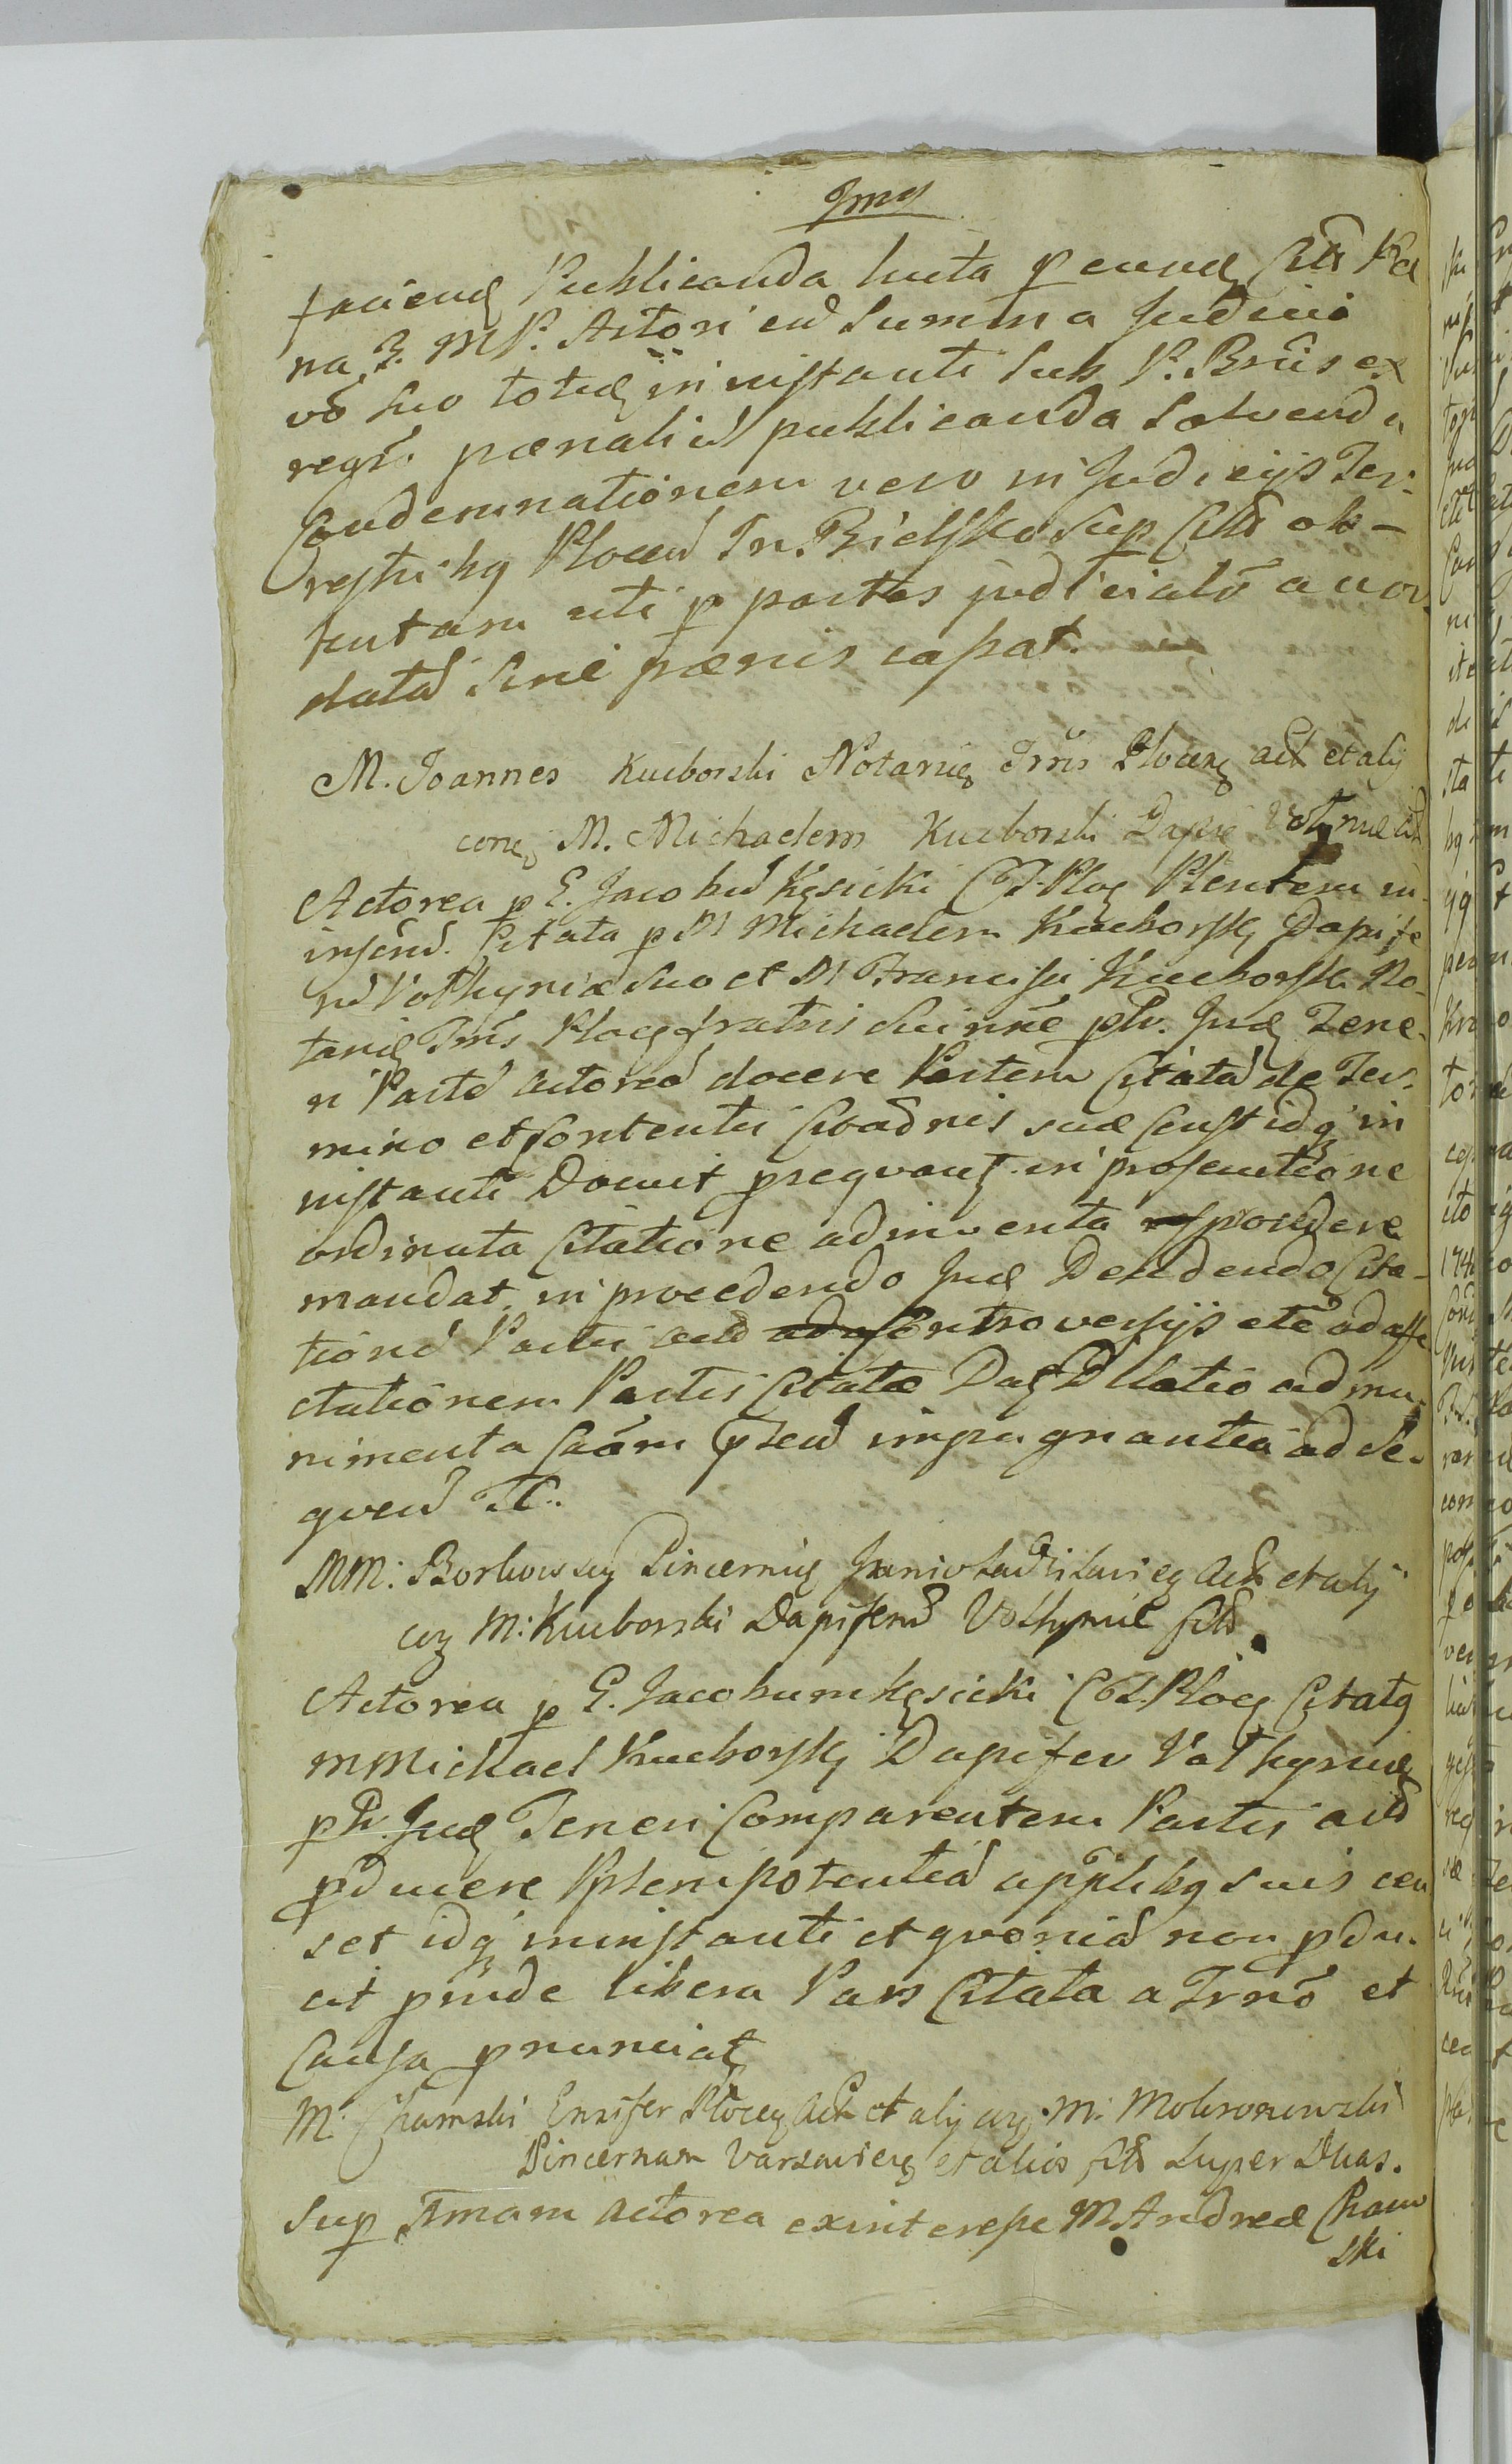 faciend Publicanda lucta p eund Citt Pœ
na 3. M P. Actori cu Summa Judicio
vo suo totius in instanti sub P. Bnis ex
regro pœnaliu publicanda Solvend a
Condemnationem vero in Judicijs Ter-
restribq Plocen Tr. Bielsko sup Citto ob-
tentam uti p partes judicialr accor-
data Sine pœnis cassat.
M. Joannes Kucborski Notarius Trris Plocens act et alij
cone M. Michaelem Kucborski Dapif Volhyniæ citt
Actorea p G. Jacobu Kęsicki C T. Ploc Plentem in
inserd. Citata p M Michaelem Kucborski Dapife
ru Volhyniæ suo et M Francisci Kucborski No-
tarij Trris Ploc fratris sui nne ptr. Jud Tene-
ri Parte actorea docere Partem Citata de Ter-
mino et Contentu Citaonis suæ Censt idq in
instanti Docuit pseqvant in prosecutione
ordinata Citatione adinventa respondere
mandat. in procedendo Jud Dendendo Cita-
tione Parti act Controversijs etc ad affe
ctationem Partis Citatæ Dat Dilatio ad mu-
nimenta Caam psen impugnantia ad Se-
qven TC.
MM: Borkowscy Pincernie Junivladislavien Act et alij
cu M: Kucborski Dapiferu Volhyniæ Citt
Actorea p G. Jacobum Kęsicki C T. Ploc Citatq
M Michael Kucborski Dapifer Volhyniæ
ptr. Jud Teneri Comparentem Parti act
pducere Plenipotentia a pplibq suis cen
set idq in instanti et qvonia non pdu-
cit pinde libera Pars Citata a Trno et
Causa pnunciat
M. Chamski Ensifer Plocen Act et alij cu M: Mokronowski
Pincernam Varsavien et alios Citt Super Duas.
Sup Imam actorea ex interesse M Andreæ Cham
ski